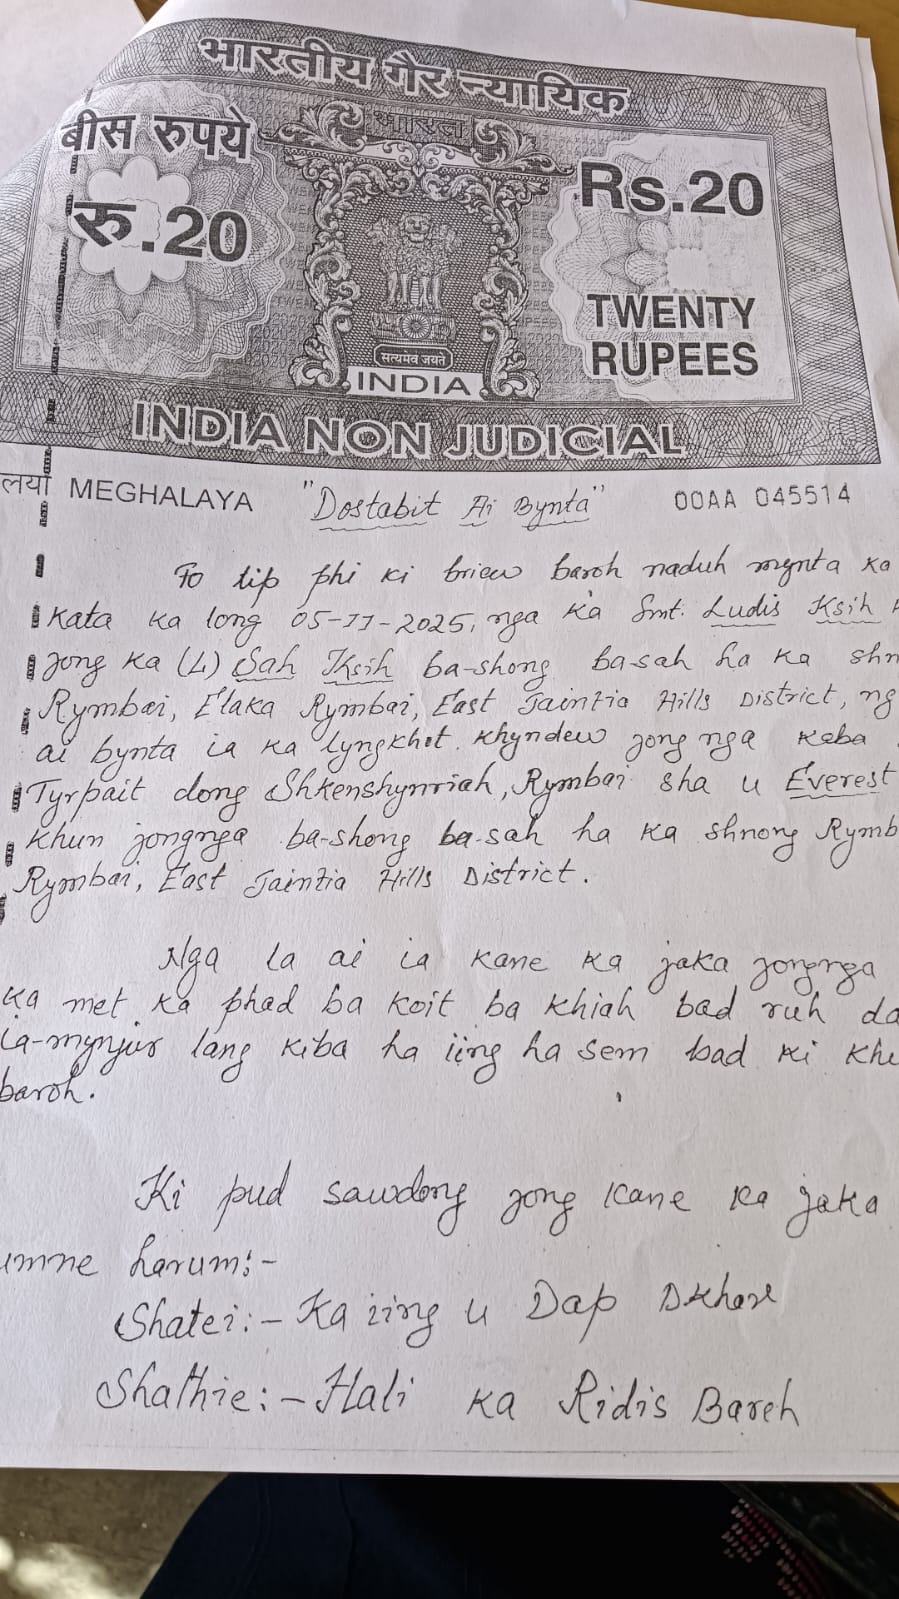 भारतीय गैर न्यायिक
भारत
बीस रुपये
रु.20
Rs.20
TWENTY
RUPEES
सत्यमेव जयते
INDIA
INDIA NON JUDICIAL
MEGHALAYA
"Dostabit Ai Bynta"
00AA 045514
To tip phi ki briew baroh naduh mynta ka
kata ka long 05-11-2025, nga ka Smt. Ludis Ksih
jong ka (L) Sah Ksih ba-shong ba-sah ha ka
Rymbai, Elaka Rymbai, East Jaintia Hills District,
ai bynta ia ka lyngkhot khyndew jong nga kaba
Tyrpait dong Shkenshynriah, Rymbai sha u Everest
khun jongnga ba-shong ba-sah ha ka shnong
Rymbai, East Jaintia Hills District.
Nga la ai ia kane ka jaka jongnga
ka met ka phad ba koit ba khiah bad ruh
ia-mynjur lang kiba ha iing ha sem bad ki
baroh.
Ki pud sawdong jong kane ka jaka
harum:-
Shatei:- Ka iing u Dap Dkhar
Shathie:- Hali ka Ridis Bareh